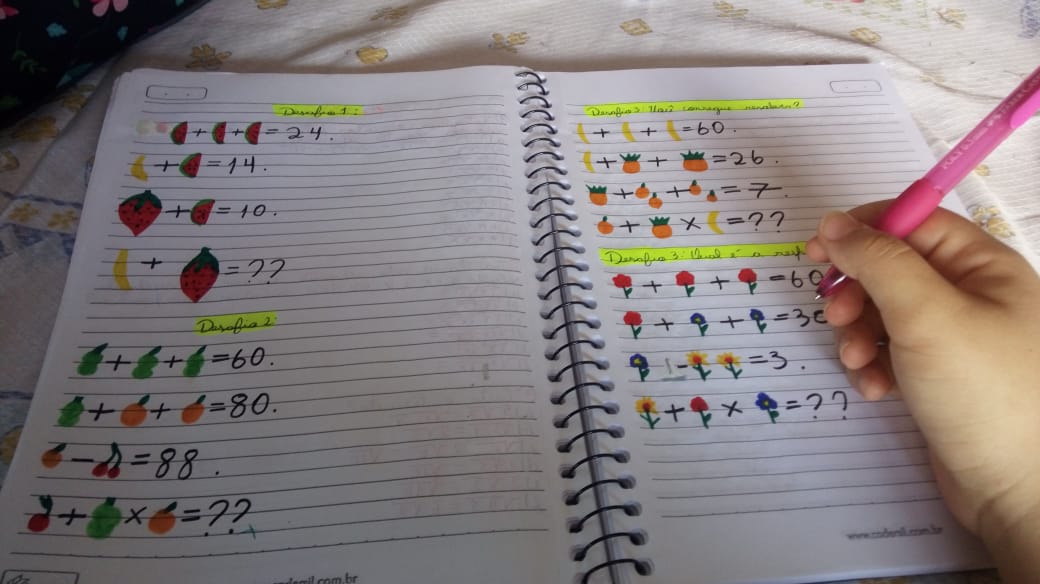 Desafio 1:
+ + = 24.
+ = 14.
+ = 10.
+ = ??
Desafio 2:
+ + = 60.
+ + = 80.
- = 88.
+ × = ??
Desafio 3: Você consegue resolver?
+ + = 60.
+ + = 26.
+ + = 7.
+ × = ??
Desafio 3: Qual é a
+ + = 60
+ + = 30
- = 3.
+ × = ??
www.codemil.com.br